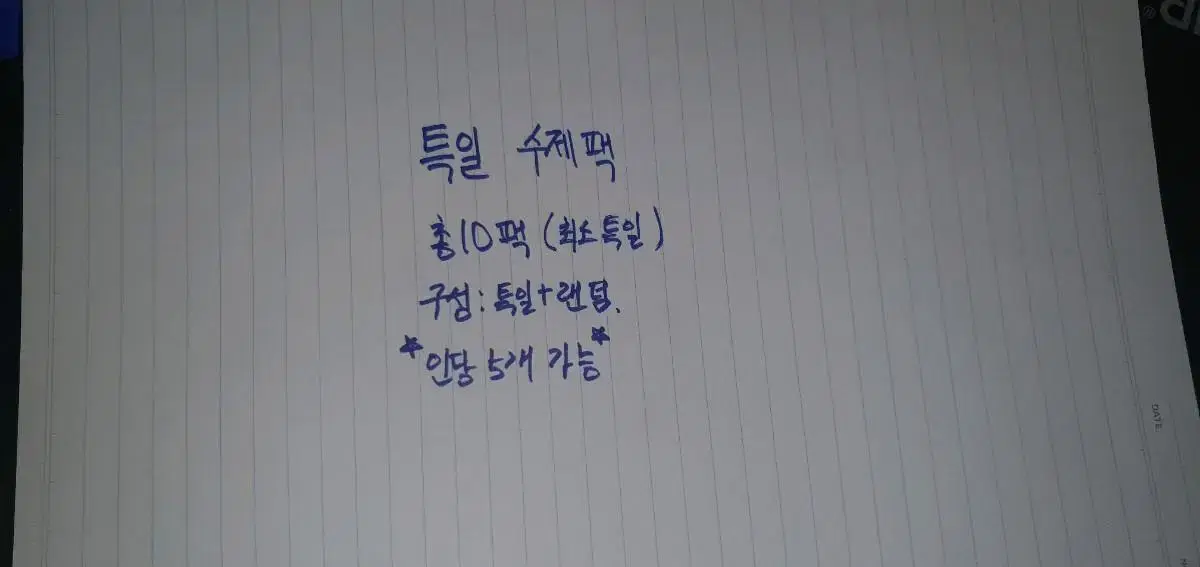 특일 수제팩
총10팩 (최소특일)
구성: 특일+랜덤.
*인당 5개 가능*
DATE